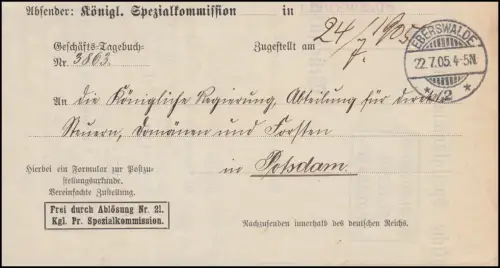 Absender: Königl. Spezialkommission in
Geschäfts-Tagebuch-
Nr. 3863.
Zugestellt am 24/7 1905
EBERSWALDE
22.7.05.4-5N.
An die Königliche Regierung, Abteilung für direkte
Steuern, Domänen und Forsten
in Potsdam.
Hierbei ein Formular zur Postzu-
stellungsurkunde.
Vereinfachte Zustellung.
Frei durch Ablösung Nr. 21.
Kgl. Pr. Spezialkommission.
Nachzusenden innerhalb des deutschen Reichs.